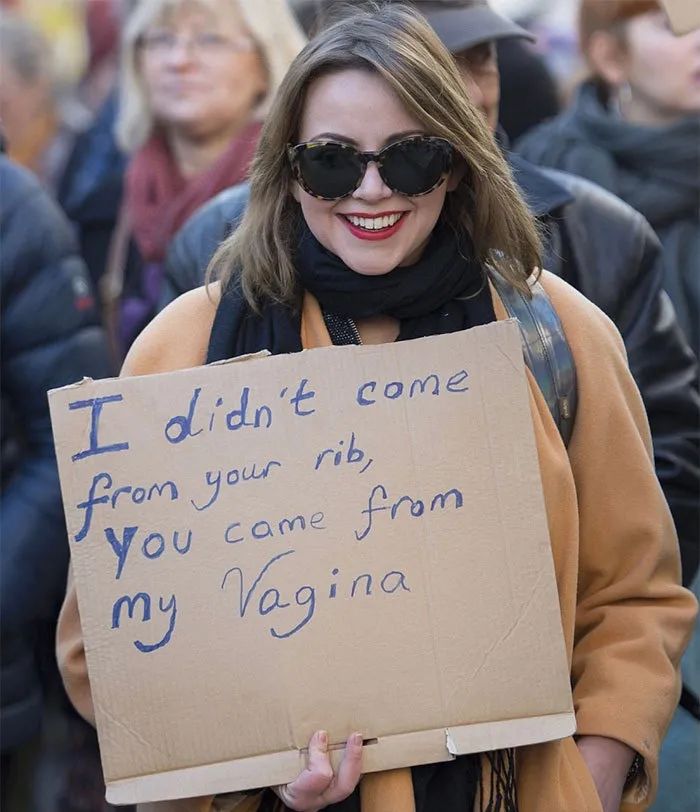 I didn't come
from your rib,
you came from
my Vagina